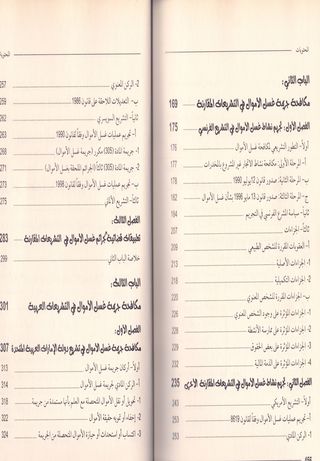 المحتويات
الباب الثاني:
مكافحة جريمة غسل الأموال في التشريعات المقارنة 169
الفصل الأول: تجريم نشاط غسل الأموال في التشريع الفرنسي 175
أولاً- التطور التشريعي لمكافحة غسل الأموال 176
أ- المرحلة الأولى: مكافحة نشاط الاتجار غير المشروع بالمخدرات 177
ب- المرحلة الثانية: صدور قانون 12 يوليو 1990 178
ج- المرحلة الثالثة: صدور قانون 13 مايو 1996 بشأن غسل الأموال 182
ثانياً- سياسة المشرع الفرنسي في التجريم 184
ثالثاً- الجزاءات 207
أ- العقوبات المقررة للشخص الطبيعي 209
1- الجزاءات الأصلية 213
2- الجزاءات التكميلية 218
ب- الجزاءات المقررة للشخص المعنوي 220
1- الجزاءات المؤثرة على وجود الشخص المعنوي 226
2- الجزاءات المؤثرة على ممارسة الأنشطة 228
3- الجزاءات المؤثرة على بعض الحقوق 229
4- الجزاءات المؤثرة على الذمة المالية 232
الفصل الثاني: تجريم نشاط غسل الأموال في التشريعات المقارنة الأخرى 235
أولاً- التشريع الأمريكي 243
أ- تجريم عمليات غسل الأموال وفقاً لقانون 8619 253
1- الركن المادي 253
466
2- الركن المعنوي 257
ب- التعديلات اللاحقة على قانون 1986 259
ثانياً- التشريع السويسري 262
أ- تجريم عمليات غسل الأموال وفقاً لقانون 1990 263
1- جريمة المادة (305) مكرر (جريمة غسل الأموال) 268
2- جريمة المادة (305) ثالثاً (الجرائم الملحقة بغسل الأموال) 271
ب- تجريم عمليات غسل الأموال وفقاً لقانون 1998 273
ثالثاً- التشريع الألماني 275
الفصل الثالث:
تطبيقات قضائية لجرائم غسل الأموال في التشريعات المقارنة 283
خلاصة الباب الثاني 299
الباب الثالث:
مكافحة جريمة غسل الأموال في التشريعات العربية 301
الفصل الأول:
مكافحة جريمة غسل الأموال في تشريع دولة الإمارات العربية المتحدة 307
أولاً- أركان جريمة غسل الأموال 313
أ- الركن المادي لجريمة غسل الأموال 314
1- تحويل أو نقل الأموال المتحصلة مع العلم بأنها مستمدة من جريمة 318
2- إخفاء أو تمويه حقيقة الأموال 322
3- اكتساب أو استخدام أو حيازة الأموال المتحصلة من الجريمة 324